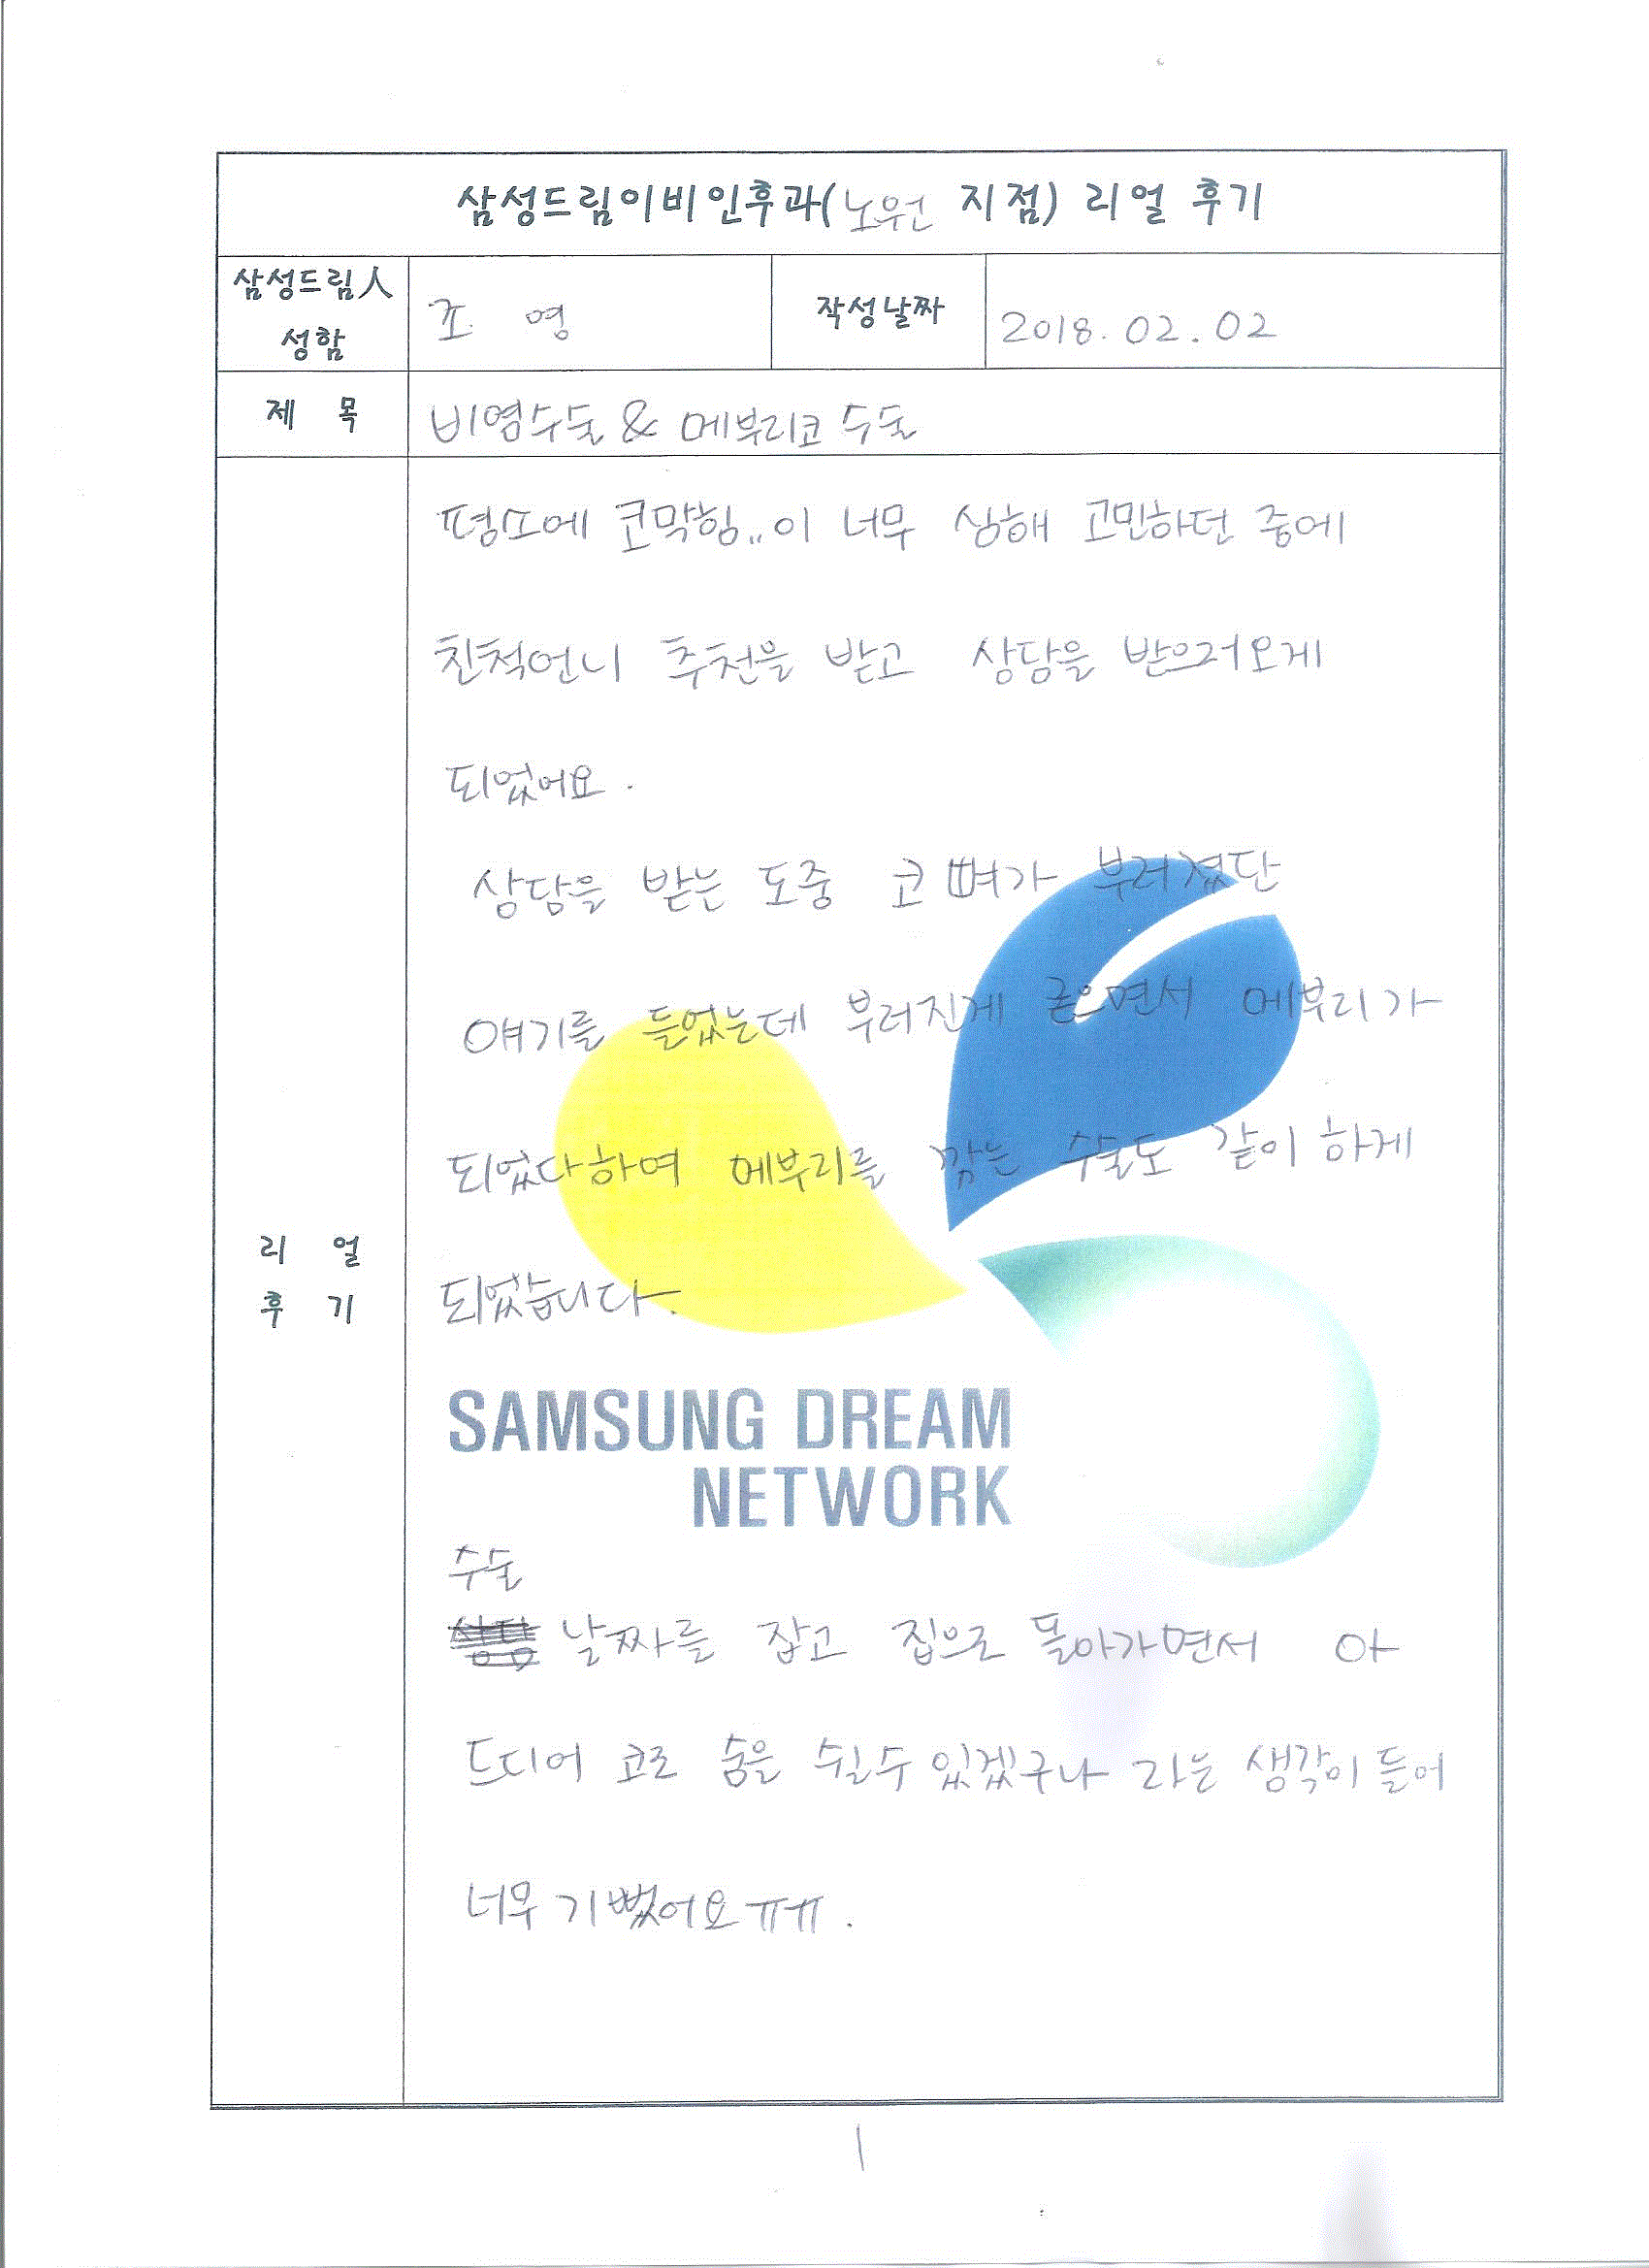 삼성드림이비인후과(노원 지점) 리얼 후기
삼성드림人 성함
조 영
작성날짜
2018. 02. 02
제 목
비염수술 & 메부리코 수술
리 얼 후 기
평소에 코막힘..이 너무 심해 고민하던 중에
친척언니 추천을 받고 상담을 받으러오게
되었어요.
상담을 받는 도중 코 뼈가 부러졌단
얘기를 들었는데 부러진게 굳으면서 메부리가
되었다하여 메부리를 깎는 수술도 같이 하게
되었습니다.
SAMSUNG DREAM
NETWORK
수술
날짜를 잡고 집으로 돌아가면서 아
드디어 코로 숨을 쉴수 있겠구나 라는 생각이 들어
너무 기뻤어요 ㅠㅠ.
1